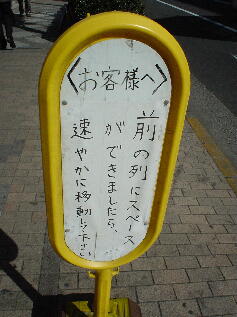 〈お客様へ〉
前の列にスペース
ができましたら、
速やかに移動して下さい